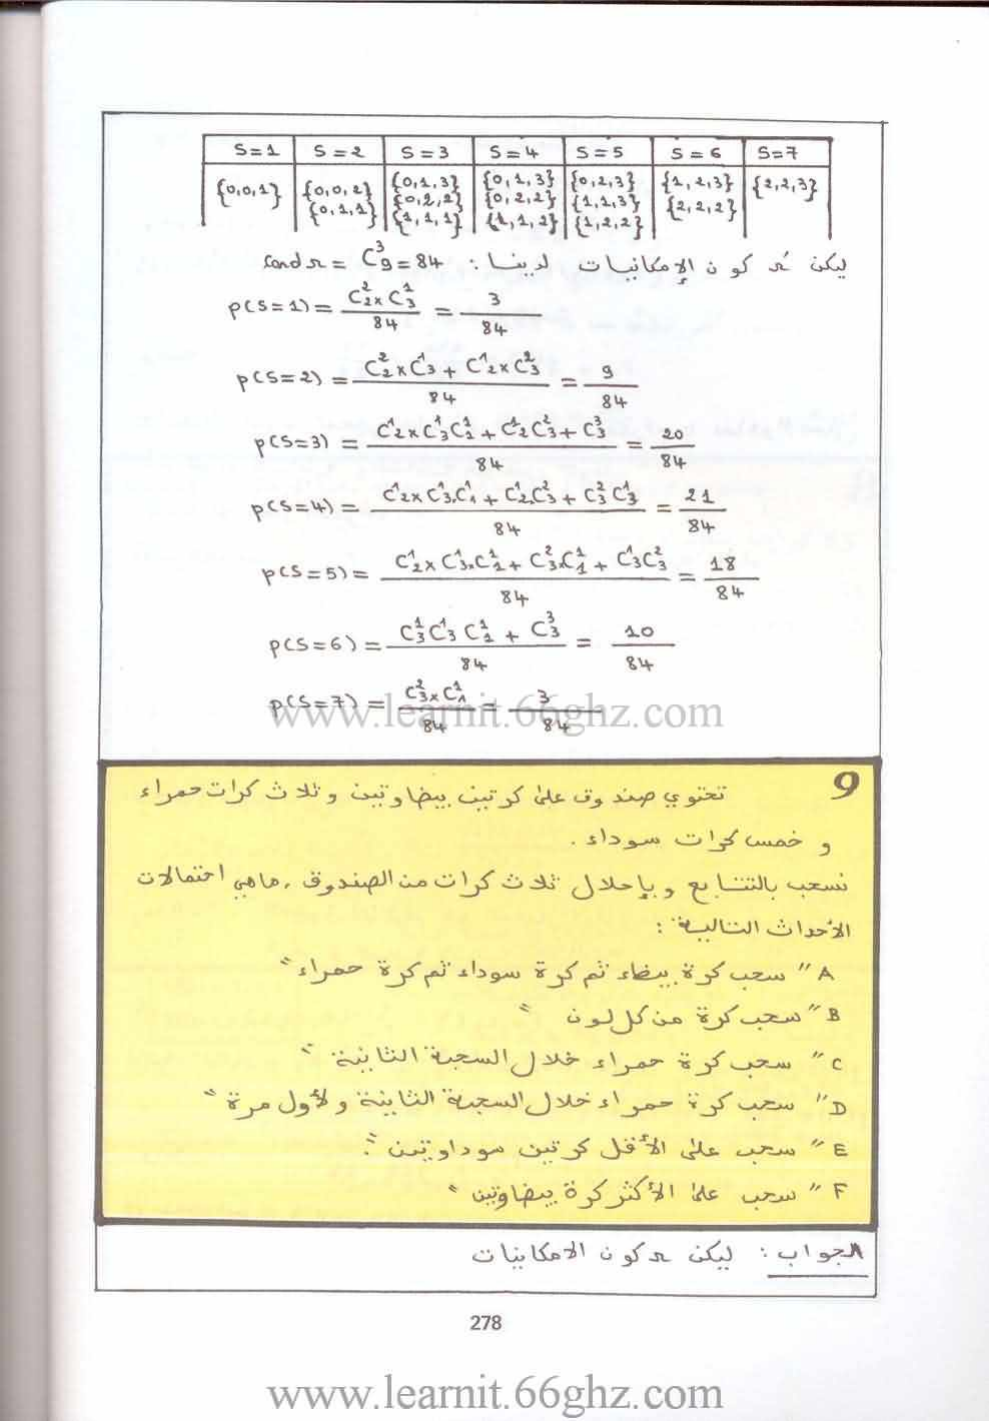 S=1 S=2 S=3 S=4 S=5 S=6 S=7
{0,0,1} {0,0,2} {0,1,3} {0,1,3} {0,2,3} {1,2,3} {2,2,3}
{0,1,1} {0,2,2} {0,2,2} {1,1,3} {2,2,2}
{1,1,1} {1,1,2} {1,2,2}
ليكن Ω كون الإمكانيات لدينا : card Ω = C³₉ = 84
p(S=1) = (C²₂ × C¹₃)/84 = 3/84
p(S=2) = (C²₂ × C¹₃ + C¹₂ × C²₃)/84 = 9/84
p(S=3) = (C¹₂ × C¹₃ C¹₁ + C¹₂ C²₃ + C³₃)/84 = 20/84
p(S=4) = (C¹₂ × C¹₃ . C¹₁ + C¹₂ . C²₃ + C²₃ C¹₃)/84 = 21/84
p(S=5) = (C¹₂ × C¹₃ . C¹₁ + C²₃ . C¹₁ + C¹₃ C²₃)/84 = 18/84
p(S=6) = (C¹₃ C¹₃ C¹₁ + C³₃)/84 = 10/84
p(S=7) = (C²₃ × C¹₁)/84 = 3/84
www.learnit.66ghz.com
9 تحتوي صندوق على كرتين بيضاوتين و ثلاث كرات حمراء
و خمس كرات سوداء .
نسحب بالتتابع وبإحلال ثلاث كرات من الصندوق . ماهي احتمالات
الأحداث التالية :
A " سحب كرة بيضاء ثم كرة سوداء ثم كرة حمراء "
B " سحب كرة من كل لون "
C " سحب كرة حمراء خلال السحبة الثانية "
D " سحب كرة حمراء خلال السحبة الثانية ولأول مرة "
E " سحب على الأقل كرتين سوداوتين " .
F " سحب على الأكثر كرة بيضاوتين "
الجواب : ليكن Ω كون الامكانيات
278
www.learnit.66ghz.com